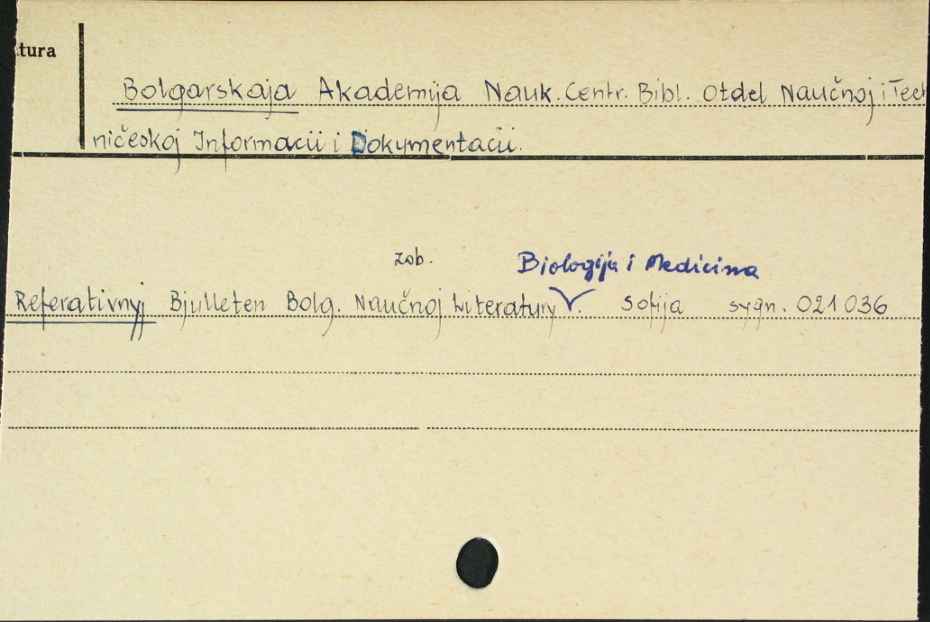 tura
Bolgarskaja Akademija Nauk. Centr. Bibl. Otdel Naučnoj i Tech
ničeskoj Informacii i Dokymentacii.
zob.
Biologija i Medicina
Referativnyj Bjulleten Bolg. Naučnoj Literatury V. Sofija sygn. 021036